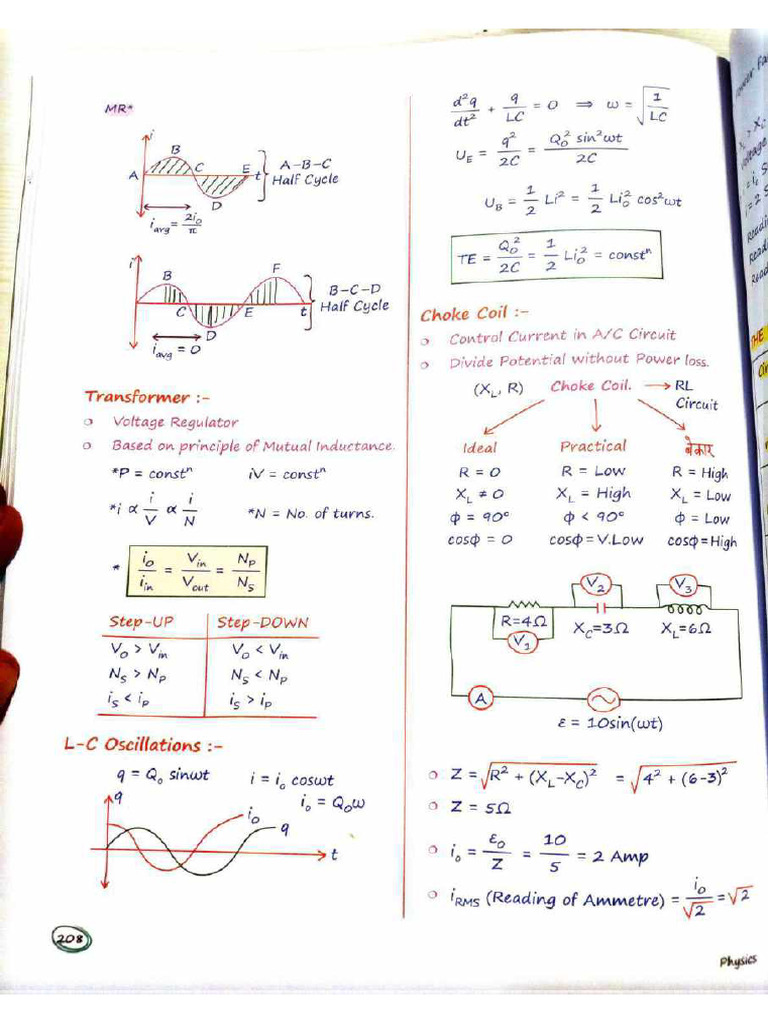 MR*
i
B
A
C
E
t
D
A-B-C
Half Cycle
i_avg = 2i₀/π
i
B
F
C
E
t
D
B-C-D
Half Cycle
i_avg = 0
Transformer :-
Voltage Regulator
Based on principle of Mutual Inductance.
*P = constⁿ iV = constⁿ
*i ∝ i/V ∝ i/N *N = No. of turns.
* i₀/i_in = V_in/V_out = N_P/N_S
Step-UP Step-DOWN
V₀ > V_in V₀ < V_in
N_S > N_P N_S < N_P
i_S < i_P i_S > i_P
L-C Oscillations :-
q = Q₀ sinωt i = i₀ cosωt
i₀ = Q₀ω
q
i₀
q
t
208
d²q/dt² + q/LC = 0 ⇒ ω = √(1/LC)
U_E = q²/2C = Q₀² sin²ωt/2C
U_B = 1/2 Li² = 1/2 Li₀² cos²ωt
TE = Q₀²/2C = 1/2 Li₀² = constⁿ
Choke Coil :-
Control Current in A/C Circuit
Divide Potential without Power loss.
(X_L, R) Choke Coil. → RL
Circuit
Ideal Practical बेकार
R = 0 R = Low R = High
X_L ≠ 0 X_L = High X_L = Low
Φ = 90° Φ < 90° Φ = Low
cosΦ = 0 cosΦ = V.Low cosΦ = High
V₂ V₃
R=4Ω X_C=3Ω X_L=6Ω
V₁
A
ε = 10sin(ωt)
Z = √(R² + (X_L-X_C)²) = √(4² + (6-3)²)
Z = 5Ω
i₀ = ε₀/Z = 10/5 = 2 Amp
i_RMS (Reading of Ammetre) = i₀/√2 = √2
Physics